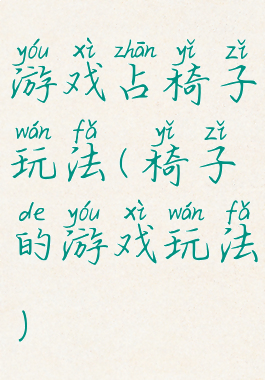 yóu xì zhān yǐ zǐ
游戏占椅子
wán fǎ yǐ zǐ
玩法(椅子
de yóu xì wán fǎ
的游戏玩法
)